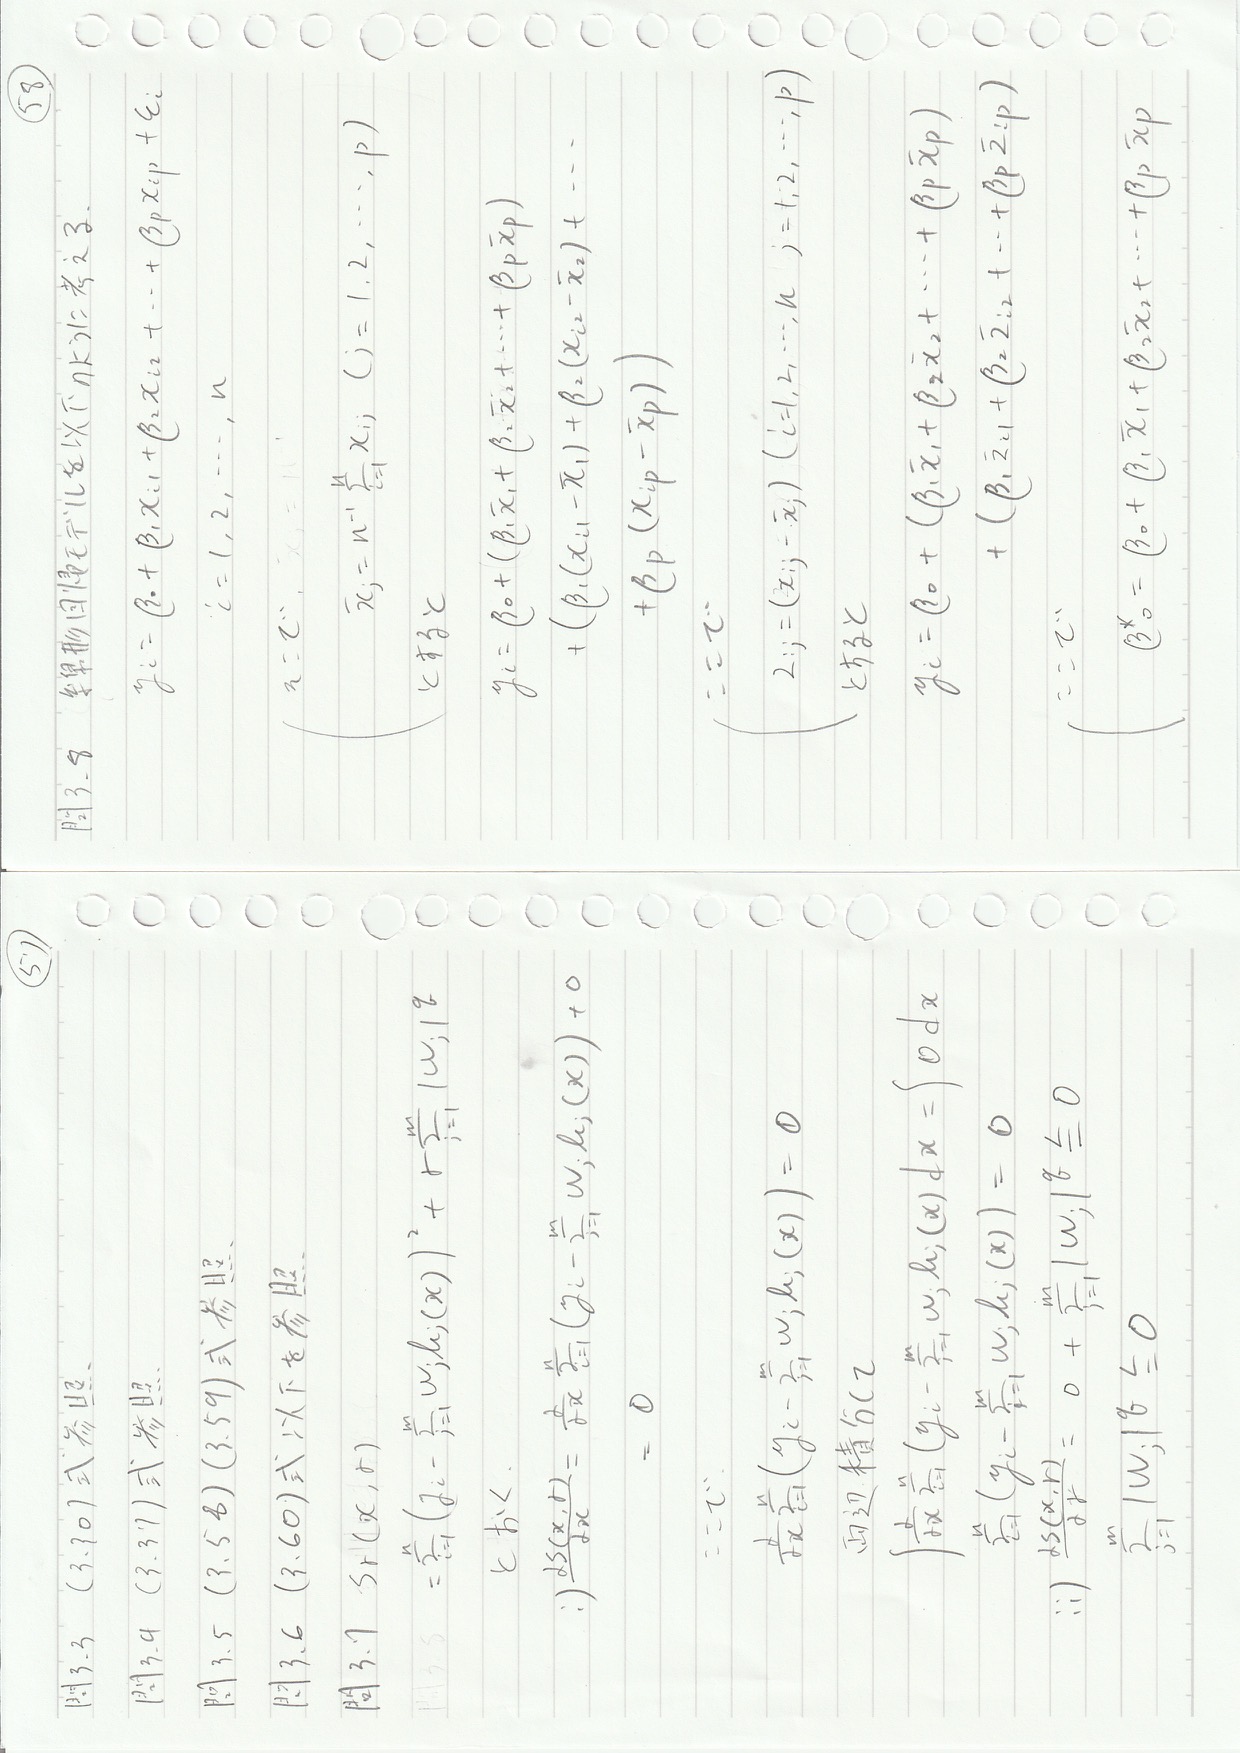 57
問3.3 (3.30)式参照.
問3.4 (3.37)式参照.
問3.5 (3.58)(3.59)式参照.
問3.6 (3.60)式以下を参照.
問3.7 Sr(x,r)
= Σ_{i=1}^{n} (y_i − Σ_{j=1}^{m} w_j h_j(x))² + r Σ_{j=1}^{m} |w_j|^q
とおく.
i) ∂S(x,r)/∂x = ∂/∂x Σ_{i=1}^{n} (y_i − Σ_{j=1}^{m} w_j h_j(x)) + 0
= 0
ここで
∂/∂x Σ_{i=1}^{n} (y_i − Σ_{j=1}^{m} w_j h_j(x)) = 0
両辺積分して
∫ ∂/∂x Σ_{i=1}^{n} (y_i − Σ_{j=1}^{m} w_j h_j(x) dx = ∫ 0 dx
Σ_{i=1}^{n} (y_i − Σ_{j=1}^{m} w_j h_j(x)) = 0
ii) ∂S(x,r)/∂r = 0 + Σ_{j=1}^{m} |w_j|^q ≦ 0
Σ_{j=1}^{m} |w_j|^q ≦ 0
58
問3.8 線形回帰モデルを以下のように考える.
y_i = β_0 + β_1 x_{i1} + β_2 x_{i2} + … + β_p x_{ip} + ε_i
i = 1, 2, …, n
ここで,
x̄_j = n⁻¹ Σ_{i=1}^{n} x_{ij} (j = 1, 2, …, p)
とすると
y_i = β_0 + (β_1 x̄_1 + β_2 x̄_2 + … + β_p x̄_p)
+ (β_1(x_{i1} − x̄_1) + β_2(x_{i2} − x̄_2) + …
+ β_p(x_{ip} − x̄_p))
ここで
z_{ij} = (x_{ij} − x̄_j) (i=1,2,…,n j=1,2,…,p)
とすると
y_i = β_0 + (β_1 x̄_1 + β_2 x̄_2 + … + β_p x̄_p)
+ (β_1 z̄_{i1} + β_2 z̄_{i2} + … + β_p z̄_{ip})
ここで
β*_0 = β_0 + β_1 x̄_1 + β_2 x̄_2 + … + β_p x̄_p